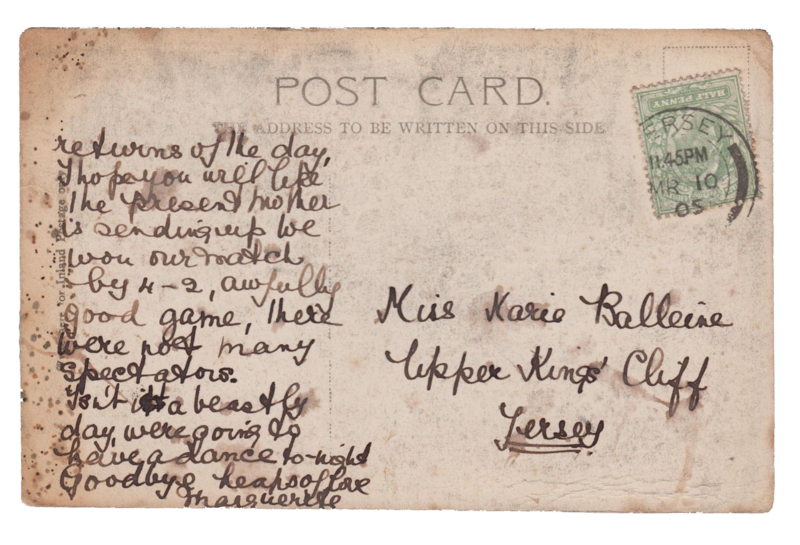 POST CARD.
THE ADDRESS TO BE WRITTEN ON THIS SIDE
HALF PENNY
JERSEY
11.45PM
MR 10
05
returns of the day,
I hope you will like
the present Mother
is sending up We
won our match
by 4-2, awfully
good game, there
were not many
spectators.
Isn't it a beastly
day, were going to
have a dance to-night
Goodbye heaps of love
Marguerite
or Inland Postage only
Miss Marie Balleine
Upper Kings' Cliff
Jersey